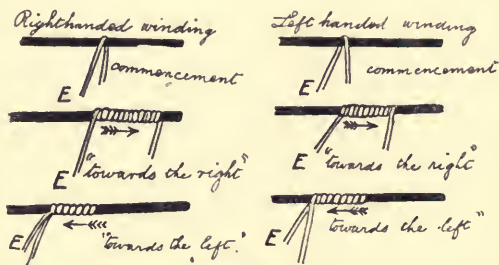 Righthanded winding
commencement
E
E "towards the right"
E "towards the left."
Left handed winding
commencement
E
E "towards the right"
E towards the left"